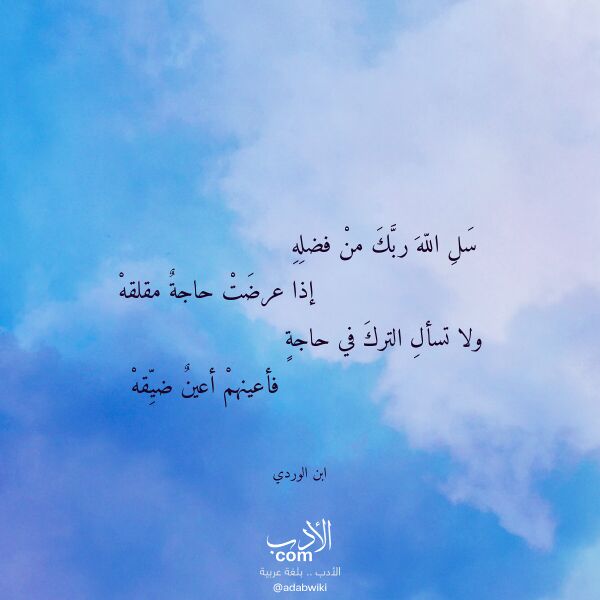 سَلِ اللّهَ ربَّكَ منْ فضلِهِ
إذا عرضَتْ حاجةٌ مقلقهْ
ولا تسألِ التركَ في حاجةٍ
فأعينهمْ أعينٌ ضيِّقهْ
ابن الوردي
الأدب
com
الأدب .. بلغة عربية
@adabwiki